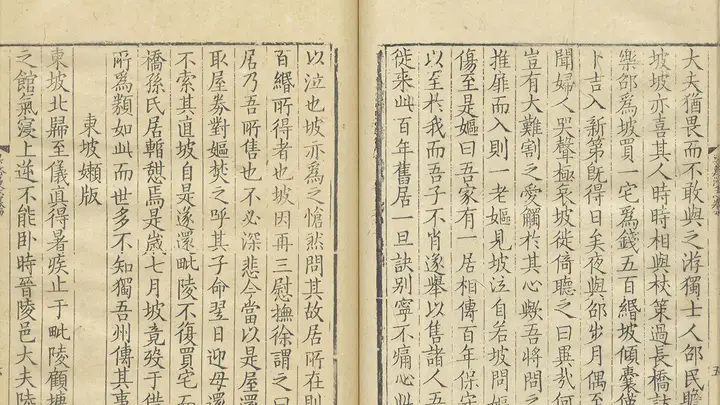 大夫猶畏而不敢與之游獨士人邵民瞻
坡坡亦喜其人時時相與杖策過長橋訪
樂邵爲坡買一宅爲錢五百緡坡傾囊僅
卜吉入新第既得日矣夜與邵步月偶至
聞婦人哭聲極哀坡徙倚聽之曰異哉何
豈有大難割之愛觸於其心歟吾將問之
推扉而入則一老嫗見坡泣自若坡問嫗
傷至是嫗曰吾家有一居相傳百年保守
以至於我而吾子不肖遂舉以售諸人吾
徙來此百年舊居一旦訣別寧不痛心此
以泣也坡亦爲之愴然問其故居所在則
百緡所得者也坡因再三慰撫徐謂之曰
居乃吾所售也不必深悲今當以是屋還
取屋券對嫗焚之呼其子命翌日迎母還
不索其直坡自是遂還毗陵不復買宅而
橋孫氏居暫憩焉是歲七月坡竟歿于借
所爲類如此而世多不知獨吾州傳其事
東坡懶版
東坡北歸至儀真得暑疾止于毗陵顧塘
之館氣寖上逆不能卧時晉陵邑大夫陸